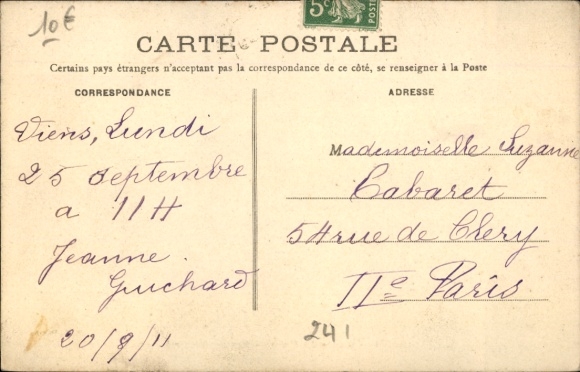 10€
5c
CARTE POSTALE
Certains pays étrangers n'acceptant pas la correspondance de ce côté, se renseigner à la Poste
CORRESPONDANCE
ADRESSE
Viens, Lundi
25 septembre
a 11H
Jeanne.
Guichard
20/9/11
Mademoiselle Suzanne
Cabaret
54 rue de Clery
IIe Parîs
241